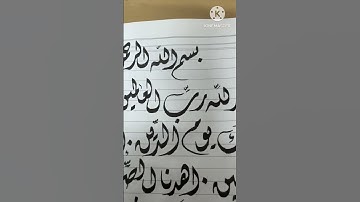 بسم الله الرحم
لله ربّ العالمين
ك يوم الدّين . ا
ين . اهدنا الصّ